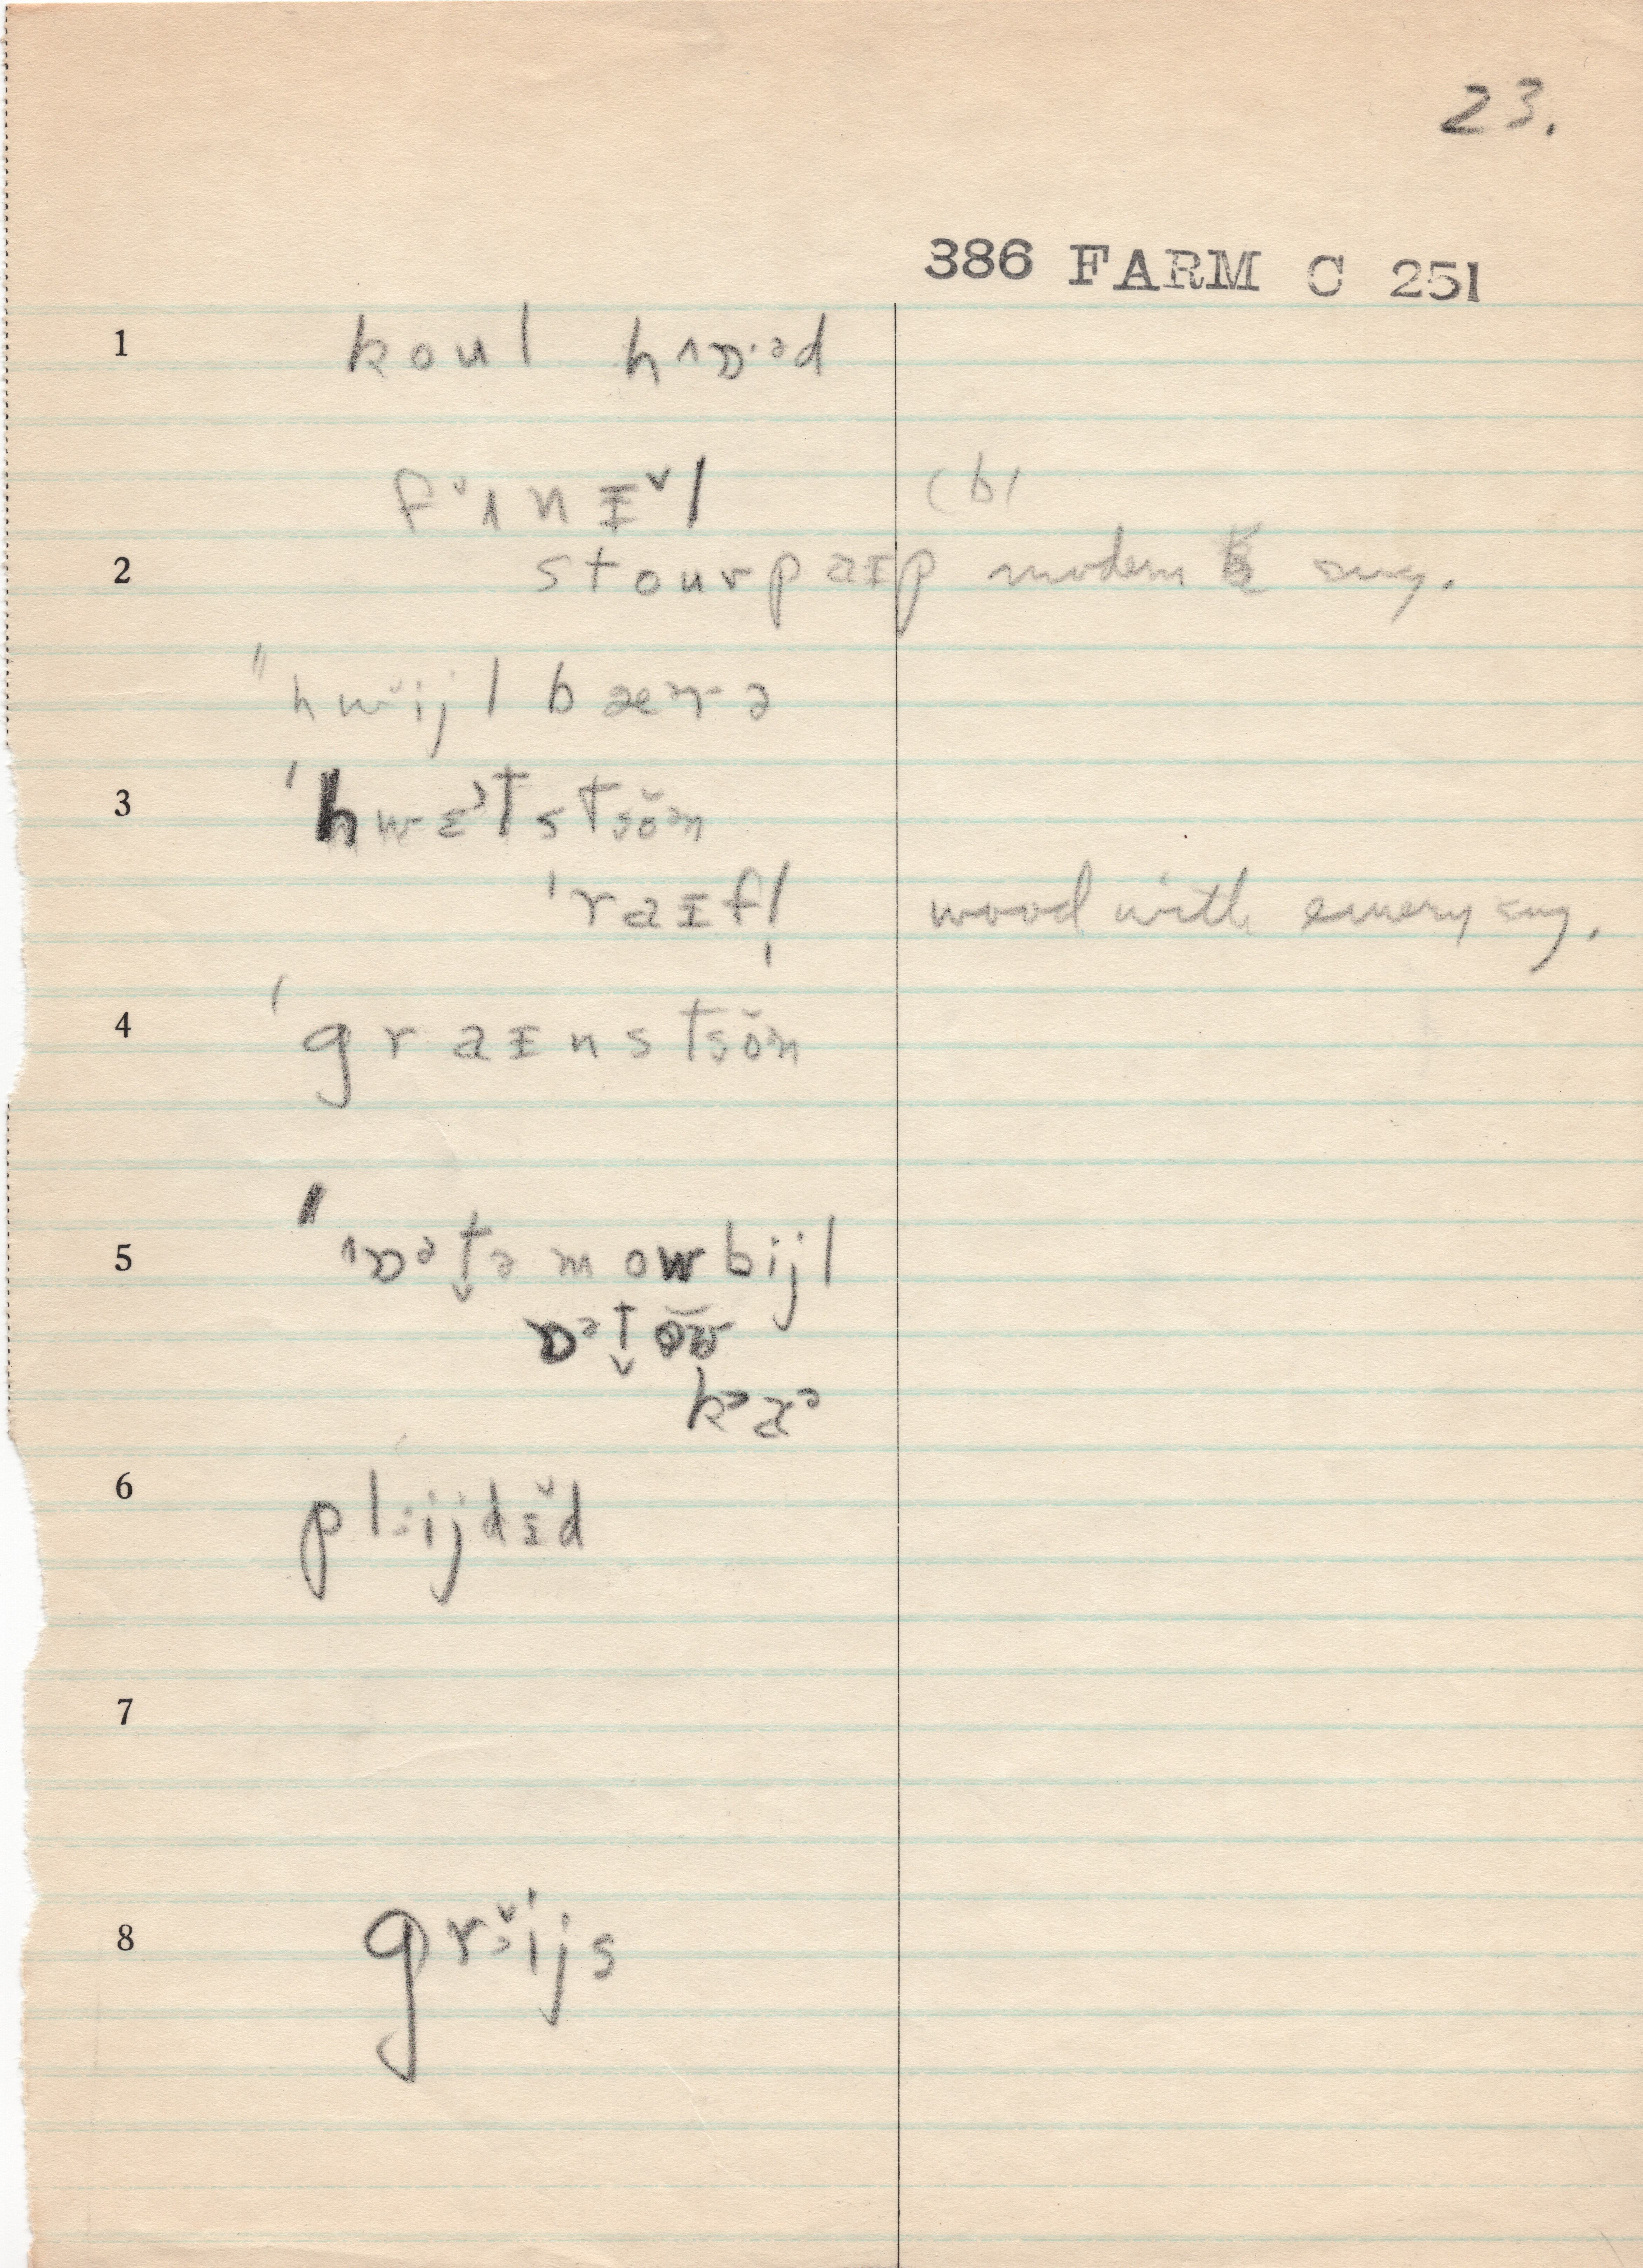 23.
386 FARM C 251
1 koul hɒ·əd
fʌnɪl (b)
2 stouvpaɪp modern sug.
"hwijl bærə
3 'hwɛtstsŏən
'raɪfl̩ wood with emery sug.
4 'graɪnstsŏən
5 "ɒətəmowbijl
ɒətow
kɑə
6 plijdɪ̆d
7
8 grijs